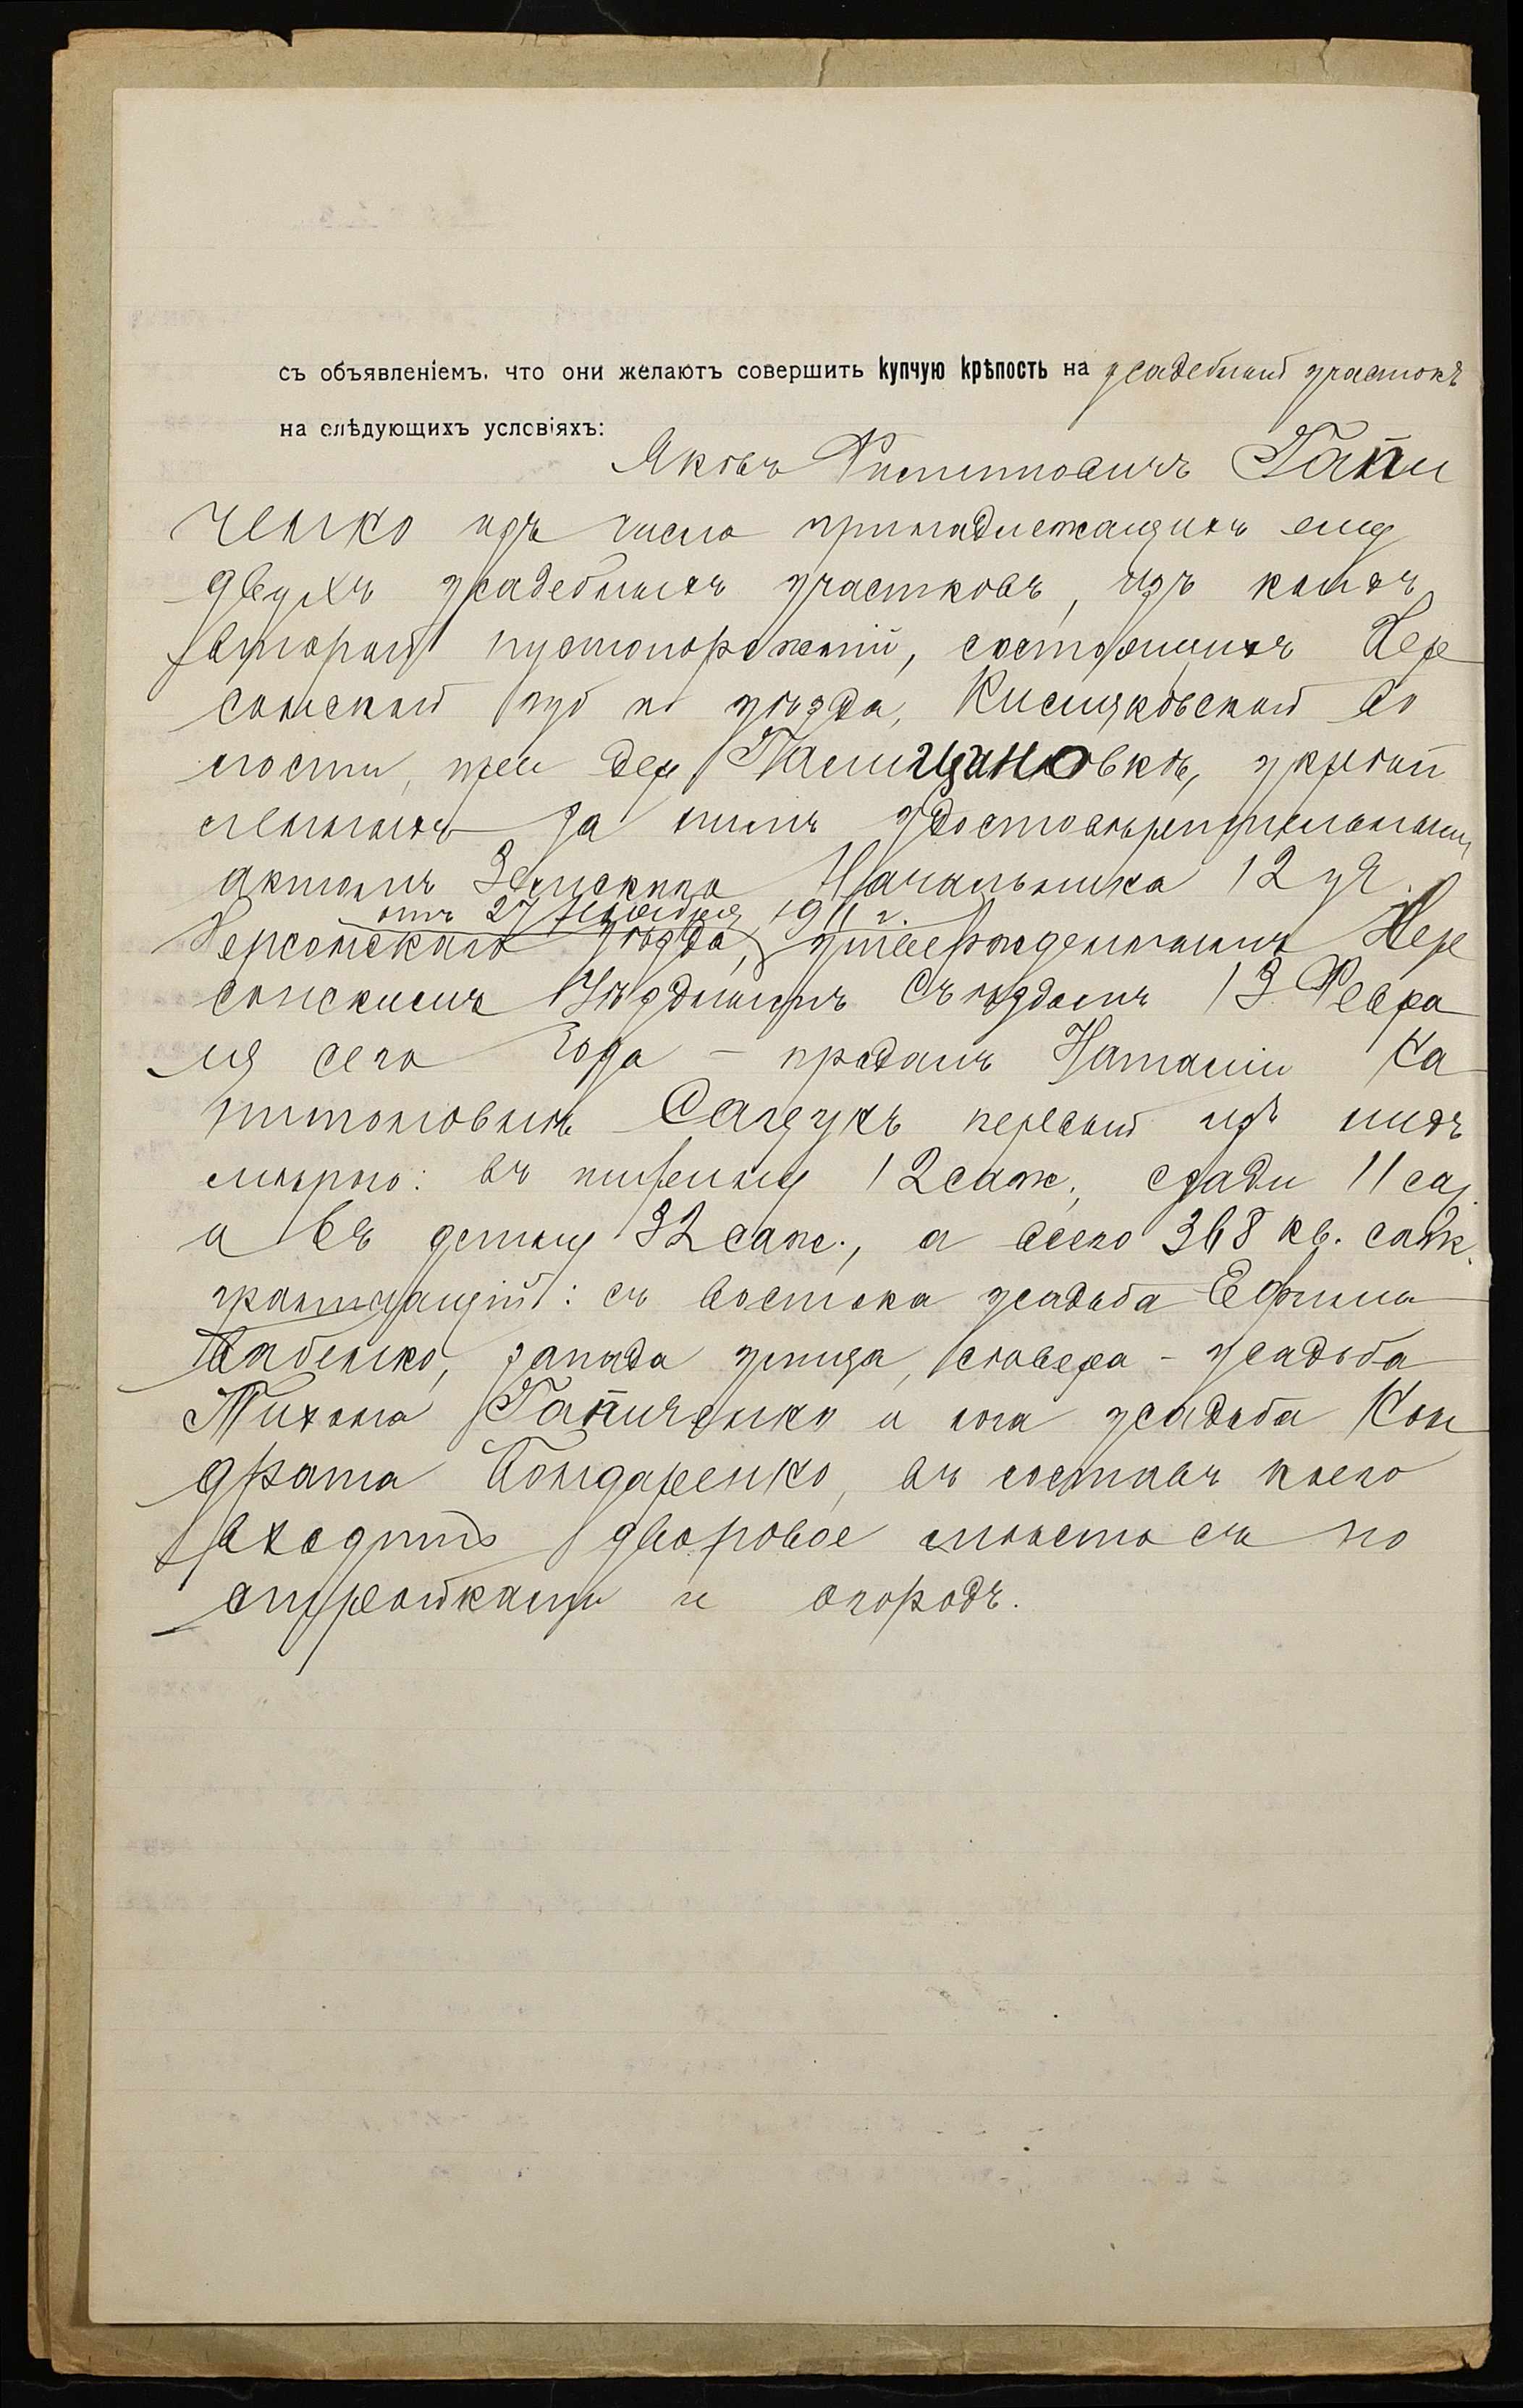 съ объявленіемъ, что они желаютъ совершить купчую крѣпость на усадебный участокъ
на слѣдующихъ условіяхъ:
Яковъ Филипповичъ Гапи
ченко изъ числа принадлежащихъ ему
двухъ усадебныхъ участковъ, изъ коихъ
второй пустопорожній, состоящихъ Хер
сонской губ и уѣзда, Кисляковской во
лости, при дер. Галицановкѣ, укрѣп
ленныхъ за нимъ удостовѣрительнымъ
актомъ Земскаго Начальника 12 уч.
отъ 27 Ноября 1911 г.
Херсонскаго уѣзда, утвержденнымъ Хер
сонскимъ Уѣзднымъ Съѣздомъ 13 Февра
ля сего года – продалъ Наталіи Ха
ритоновнѣ Сагдукъ первый изъ нихъ
мѣрою: въ ширину 12 саж., сзади 11 саж.
и въ длину 32 саж., а всего 368 кв. саж.
граничащій: съ востока усадьба Ефима
Бабенко, запада улица, сѣвера - усадьба
Тихона Гапиченко и юга усадьба Кон
драта Бондаренко, въ составъ коего
входитъ дворовое мѣсто съ по
стройками и огородъ.